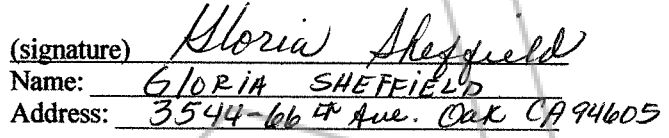 (signature) Gloria Sheffield
Name: GLORIA SHEFFIELD
Address: 3544-66th Ave. Oak CA 94605